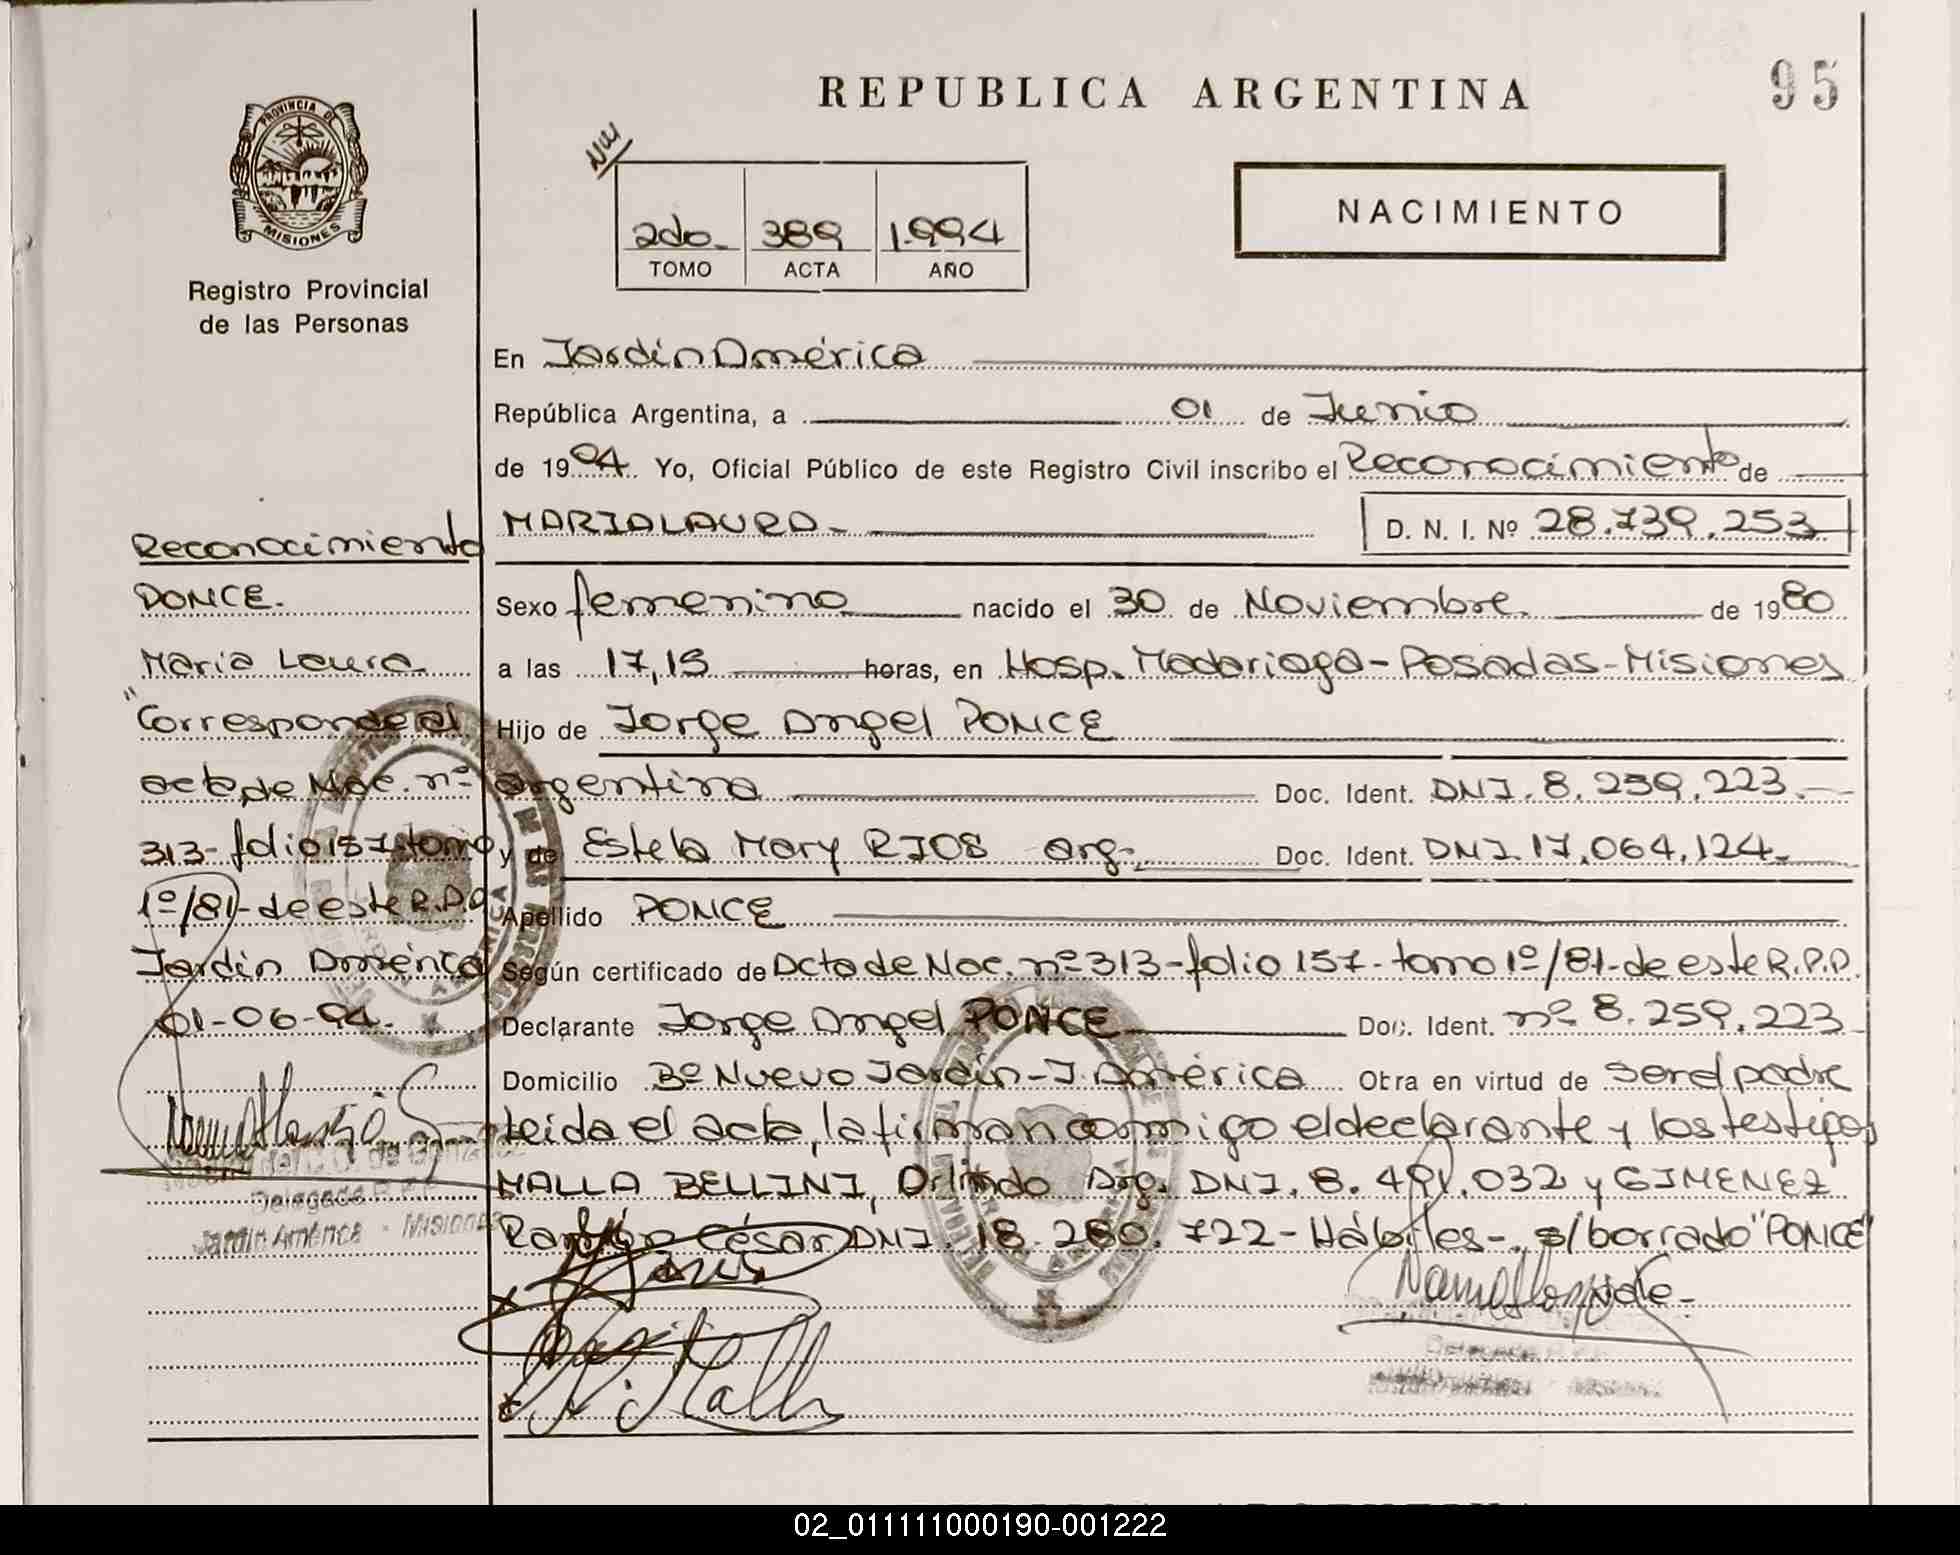 REPUBLICA ARGENTINA
95
PROVINCIA DE
MISIONES
Registro Provincial
de las Personas
2do. 389 1.994
TOMO ACTA AÑO
NACIMIENTO
En Jardín América
República Argentina, a 01 de Junio
de 1994. Yo, Oficial Público de este Registro Civil inscribo el Reconocimiento de
MARIA LAURA.-
D. N. I. Nº 28.739.253
Sexo femenino nacido el 30 de Noviembre de 1980
a las 17,15 horas, en Hosp. Madariaga-Posadas-Misiones
Hijo de Jorge Angel PONCE
argentina Doc. Ident. DNI. 8.259.223.-
y de Estela Mary RIOS arg. Doc. Ident. DNI. 17.064.124.-
Apellido PONCE
Según certificado de Acta de Nac. nº 313-folio 157-tomo 1º/81-de este R.P.P.
Declarante Jorge Angel PONCE Doc. Ident. nº 8.259.223
Domicilio Bº Nuevo Jardín-J. América Obra en virtud de ser el padre
Leida el acta, la firman conmigo el declarante y los testigos
MALLA BELLINI, Orlindo Arg. DNI. 8.491.032 y GIMENEZ
Ramón César DNI. 18.260.722-Hábiles-. s/borrado "PONCE"
Vale.-
Reconocimiento
PONCE.
María Laura
"Corresponde al
acta de Nac. nº
313-folio 157-tomo
1º/81-de este R.P.P.
Jardín América
01-06-94.
Delegada R.P.P.
Jardín América - Misiones
Delegada R.P.P.
02_011111000190-001222